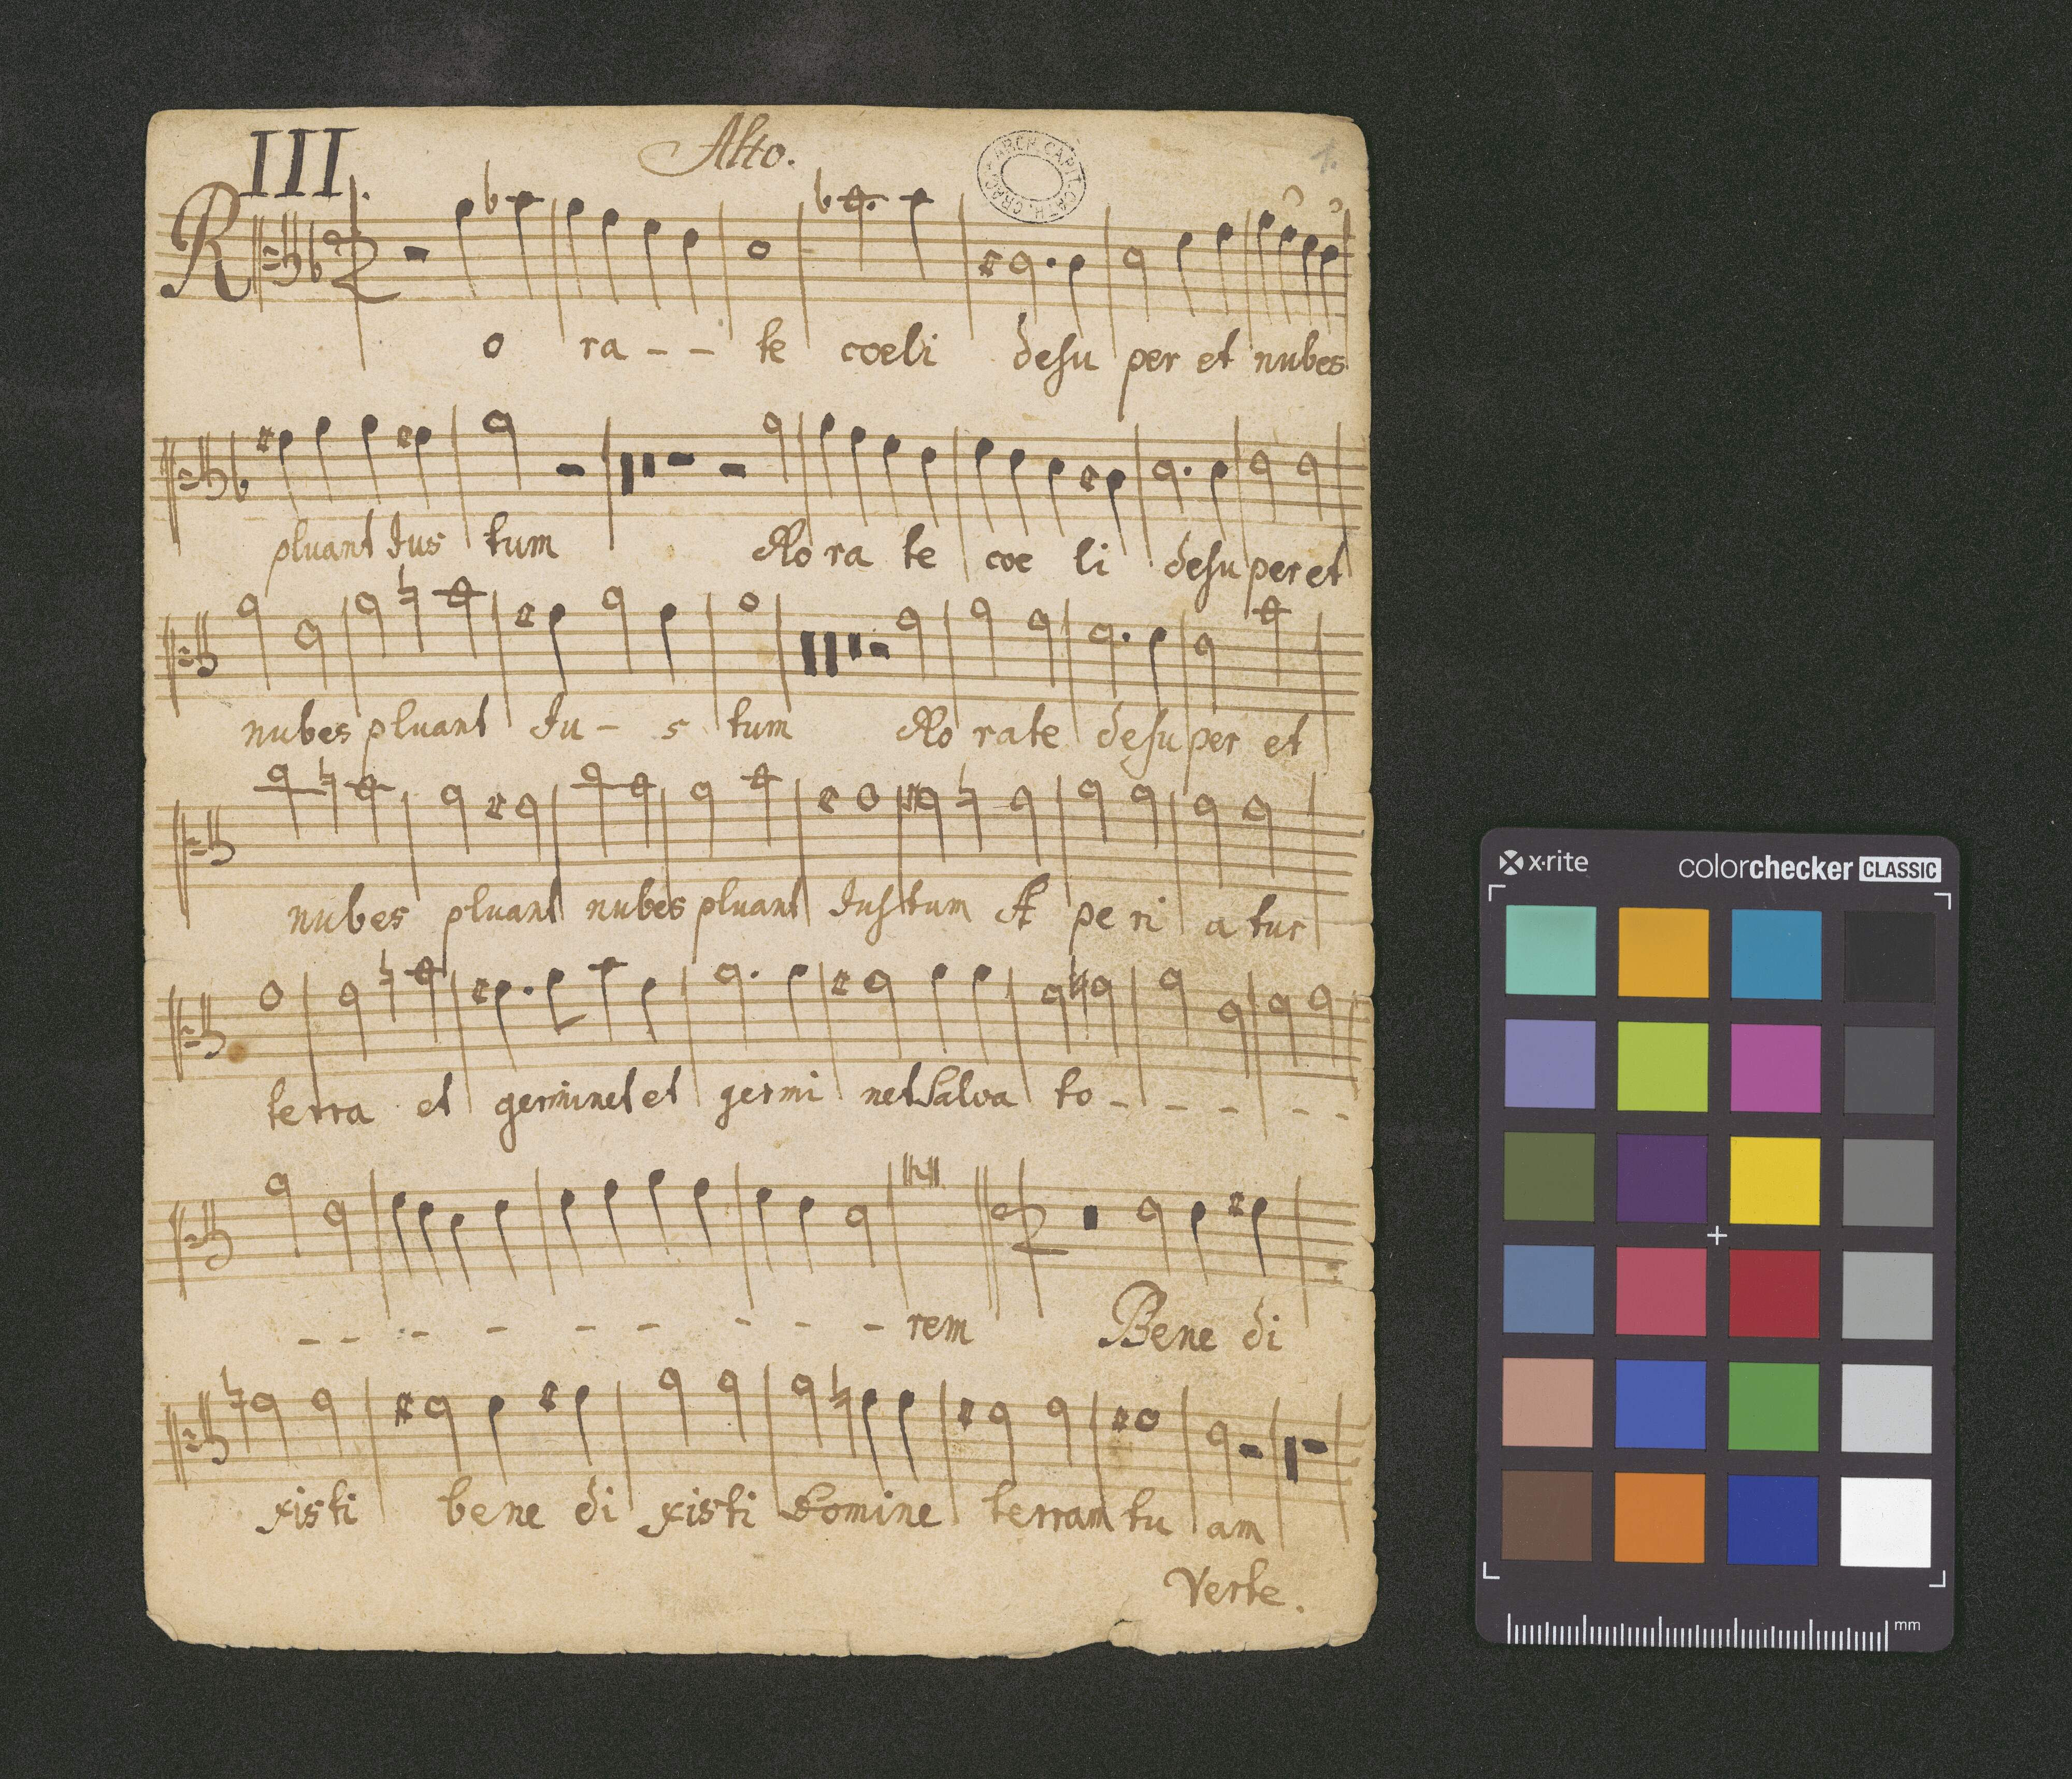 III. Alto. 1.
ARCH. CAPIT. CATH. CRAC.
Ro ra - - te coeli desu per et nubes
pluant Jus tum Ro ra te coe li desu per et
nubes pluant Ju - s tum Ro rate desuper et
nubes pluant nubes pluant Justum A pe ri a tur
terra et germinet et germi net Salva to - - - - -
- - - - - - - - - rem Bene di
xisti bene di xisti Domine terram tu am
Verte.
x-rite colorchecker CLASSIC
mm